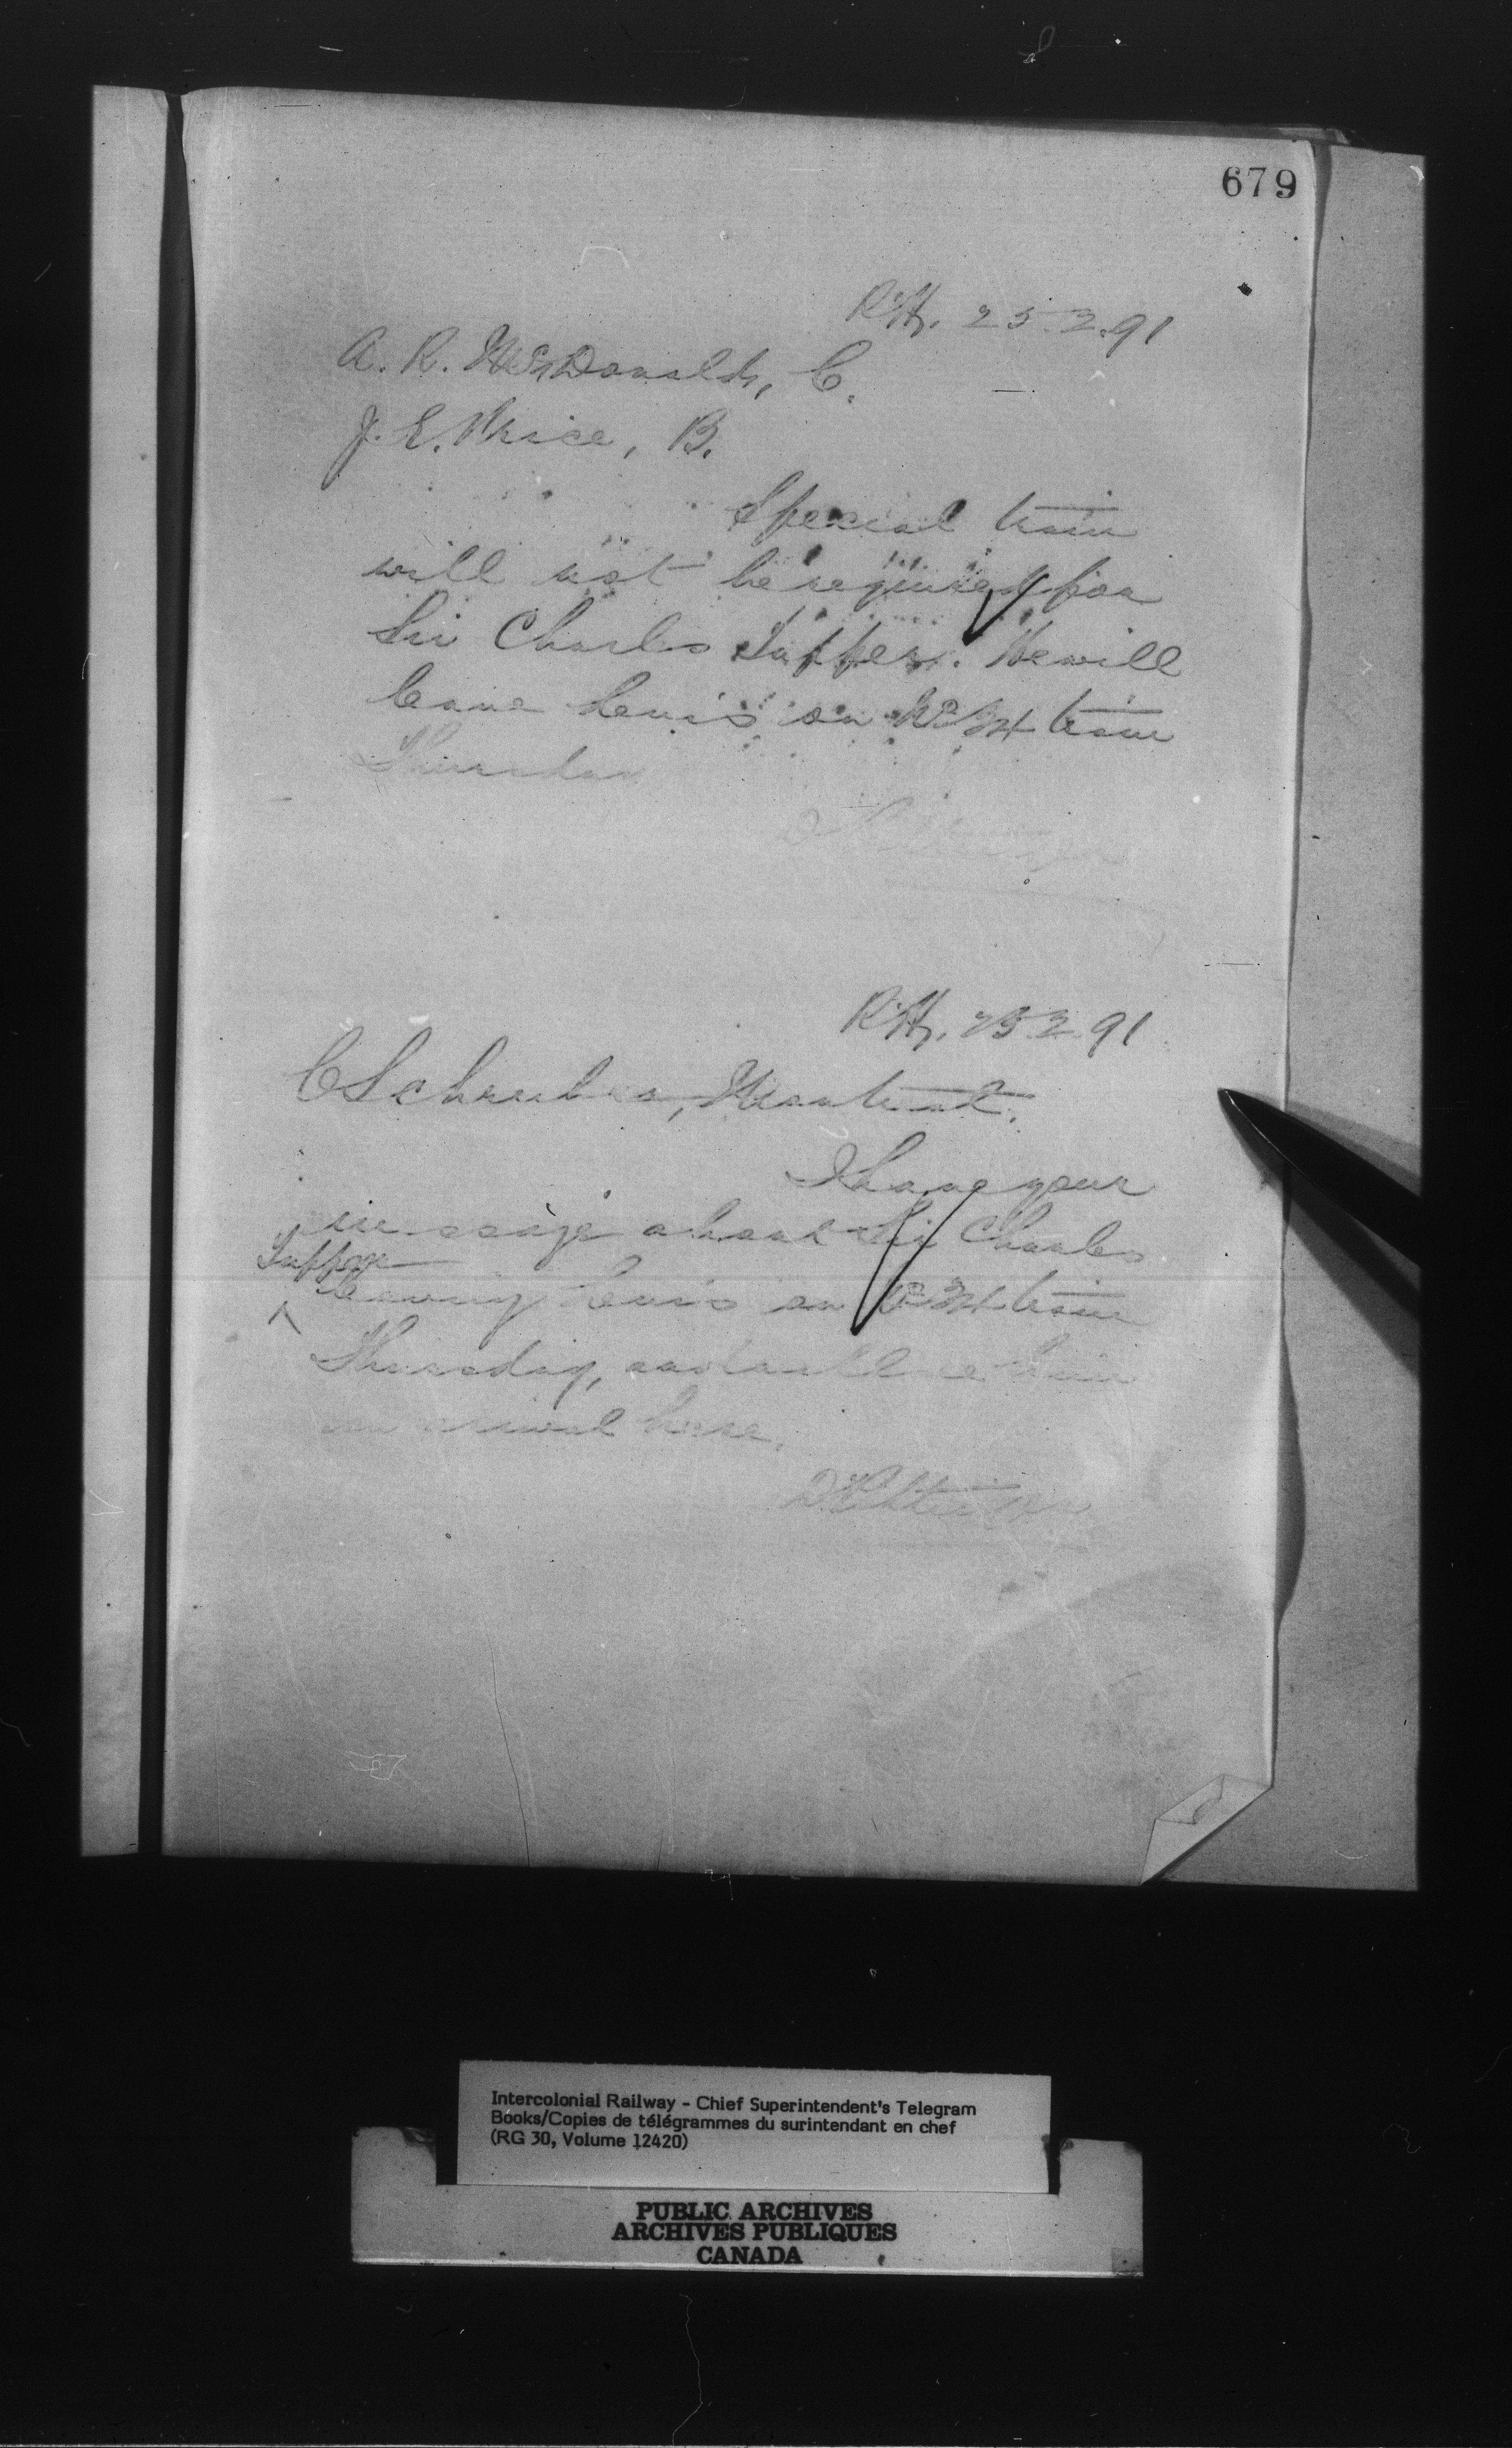 679
R.H. 25.2.91
A. R. McDonald, C.
J. E. Price, B.
Special train
will not be required for
Sir Charles Tupper. He will
leave Levis on No 34 train
Thursday
D Pottinger
R.H. 25.2.91
C Schreiber, Montreal.
I have your
message about Sir Charles
Tupper
leaving Levis on No 34 train
Thursday, and will see him
on arrival here.
D Pottinger
Intercolonial Railway - Chief Superintendent's Telegram
Books/Copies de télégrammes du surintendant en chef
(RG 30, Volume 12420)
PUBLIC ARCHIVES
ARCHIVES PUBLIQUES
CANADA